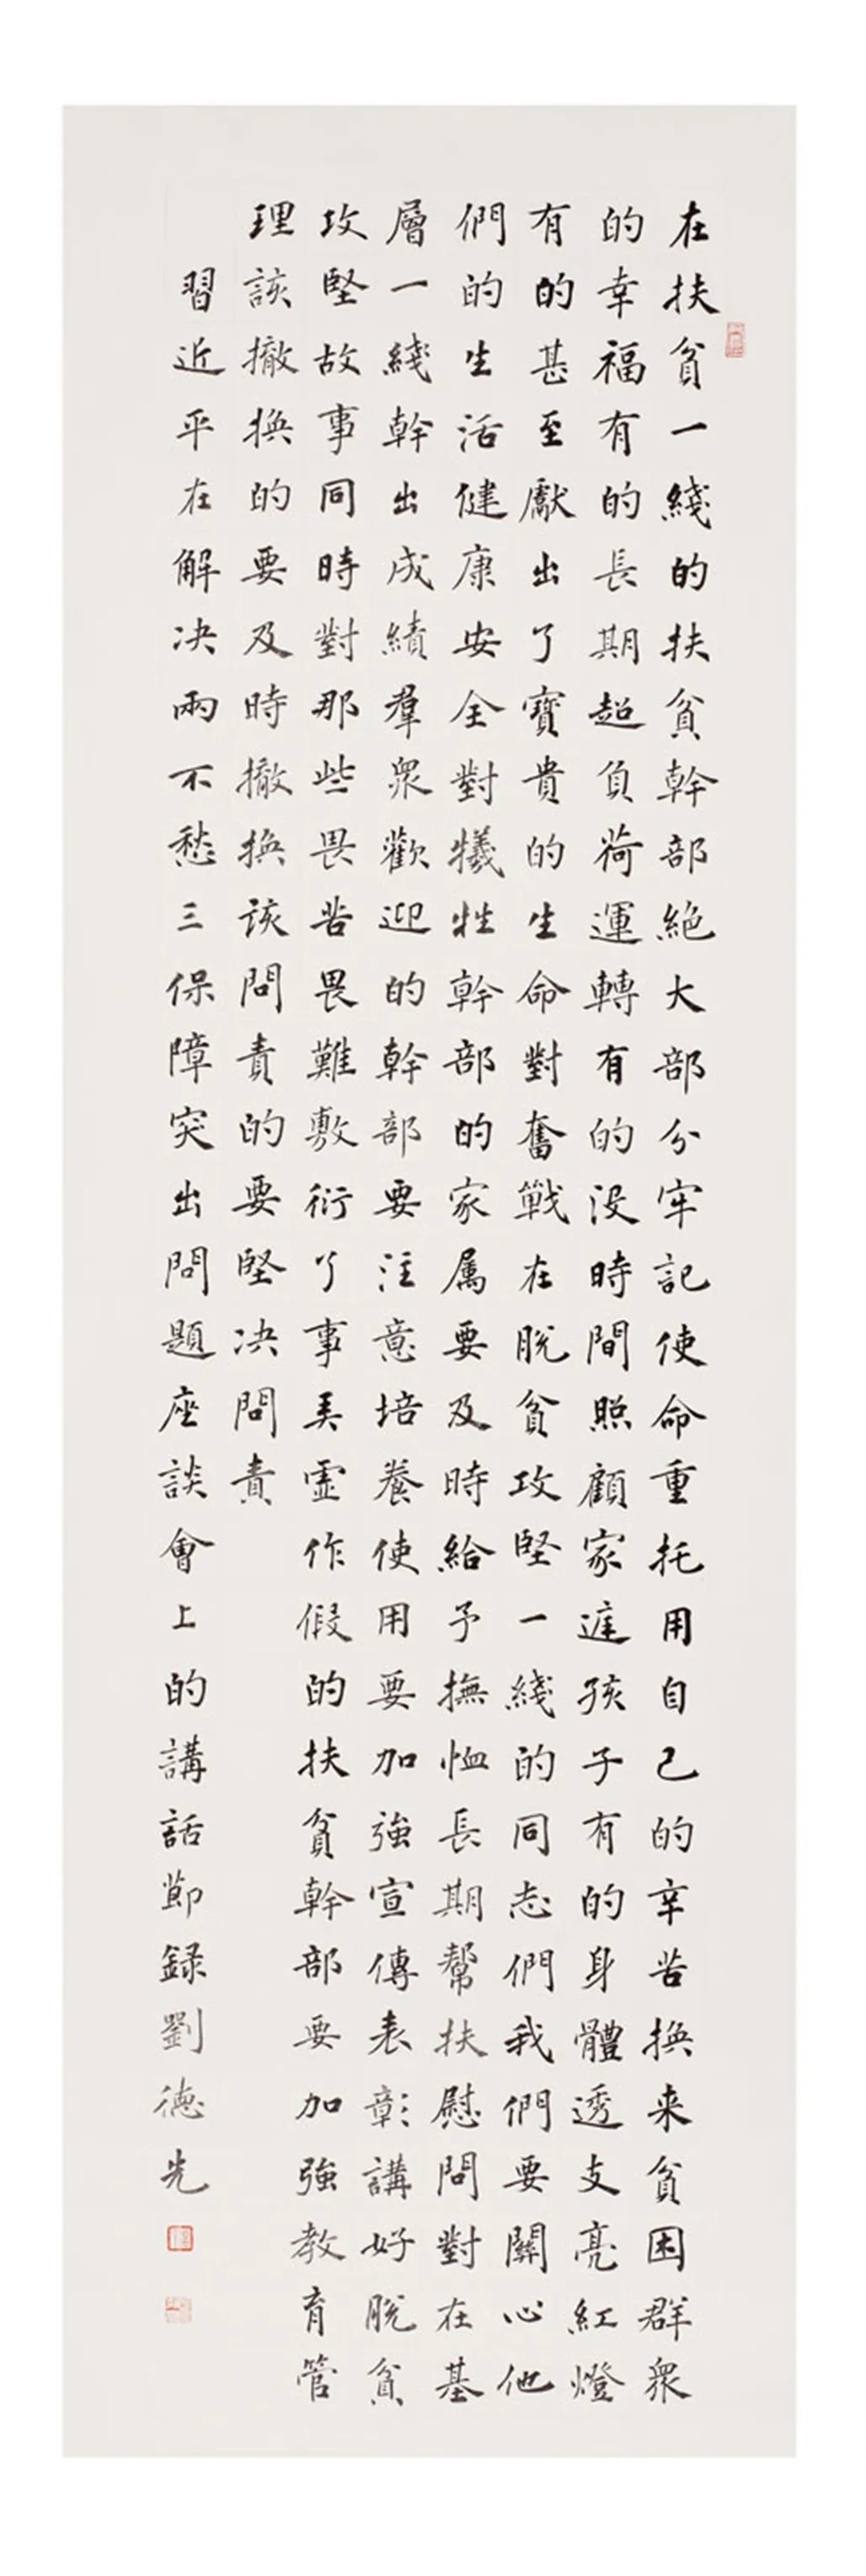 在扶貧一綫的扶貧幹部絕大部分牢記使命重托用自己的辛苦換来貧困群衆
的幸福有的長期超負荷運轉有的没時間照顧家庭孩子有的身體透支亮紅燈
有的甚至獻出了寶貴的生命對奮戰在脫貧攻堅一綫的同志們我們要關心他
們的生活健康安全對犧牲幹部的家属要及時給予撫恤長期幫扶慰問對在基
層一綫幹出成績羣衆歡迎的幹部要注意培養使用要加強宣傳表彰講好脫貧
攻堅故事同時對那些畏苦畏難敷衍了事弄虛作假的扶貧幹部要加強教育管
理該撤換的要及時撤換該問責的要堅决問責
習近平在解决兩不愁三保障突出問題座談會上的講話節録劉德先